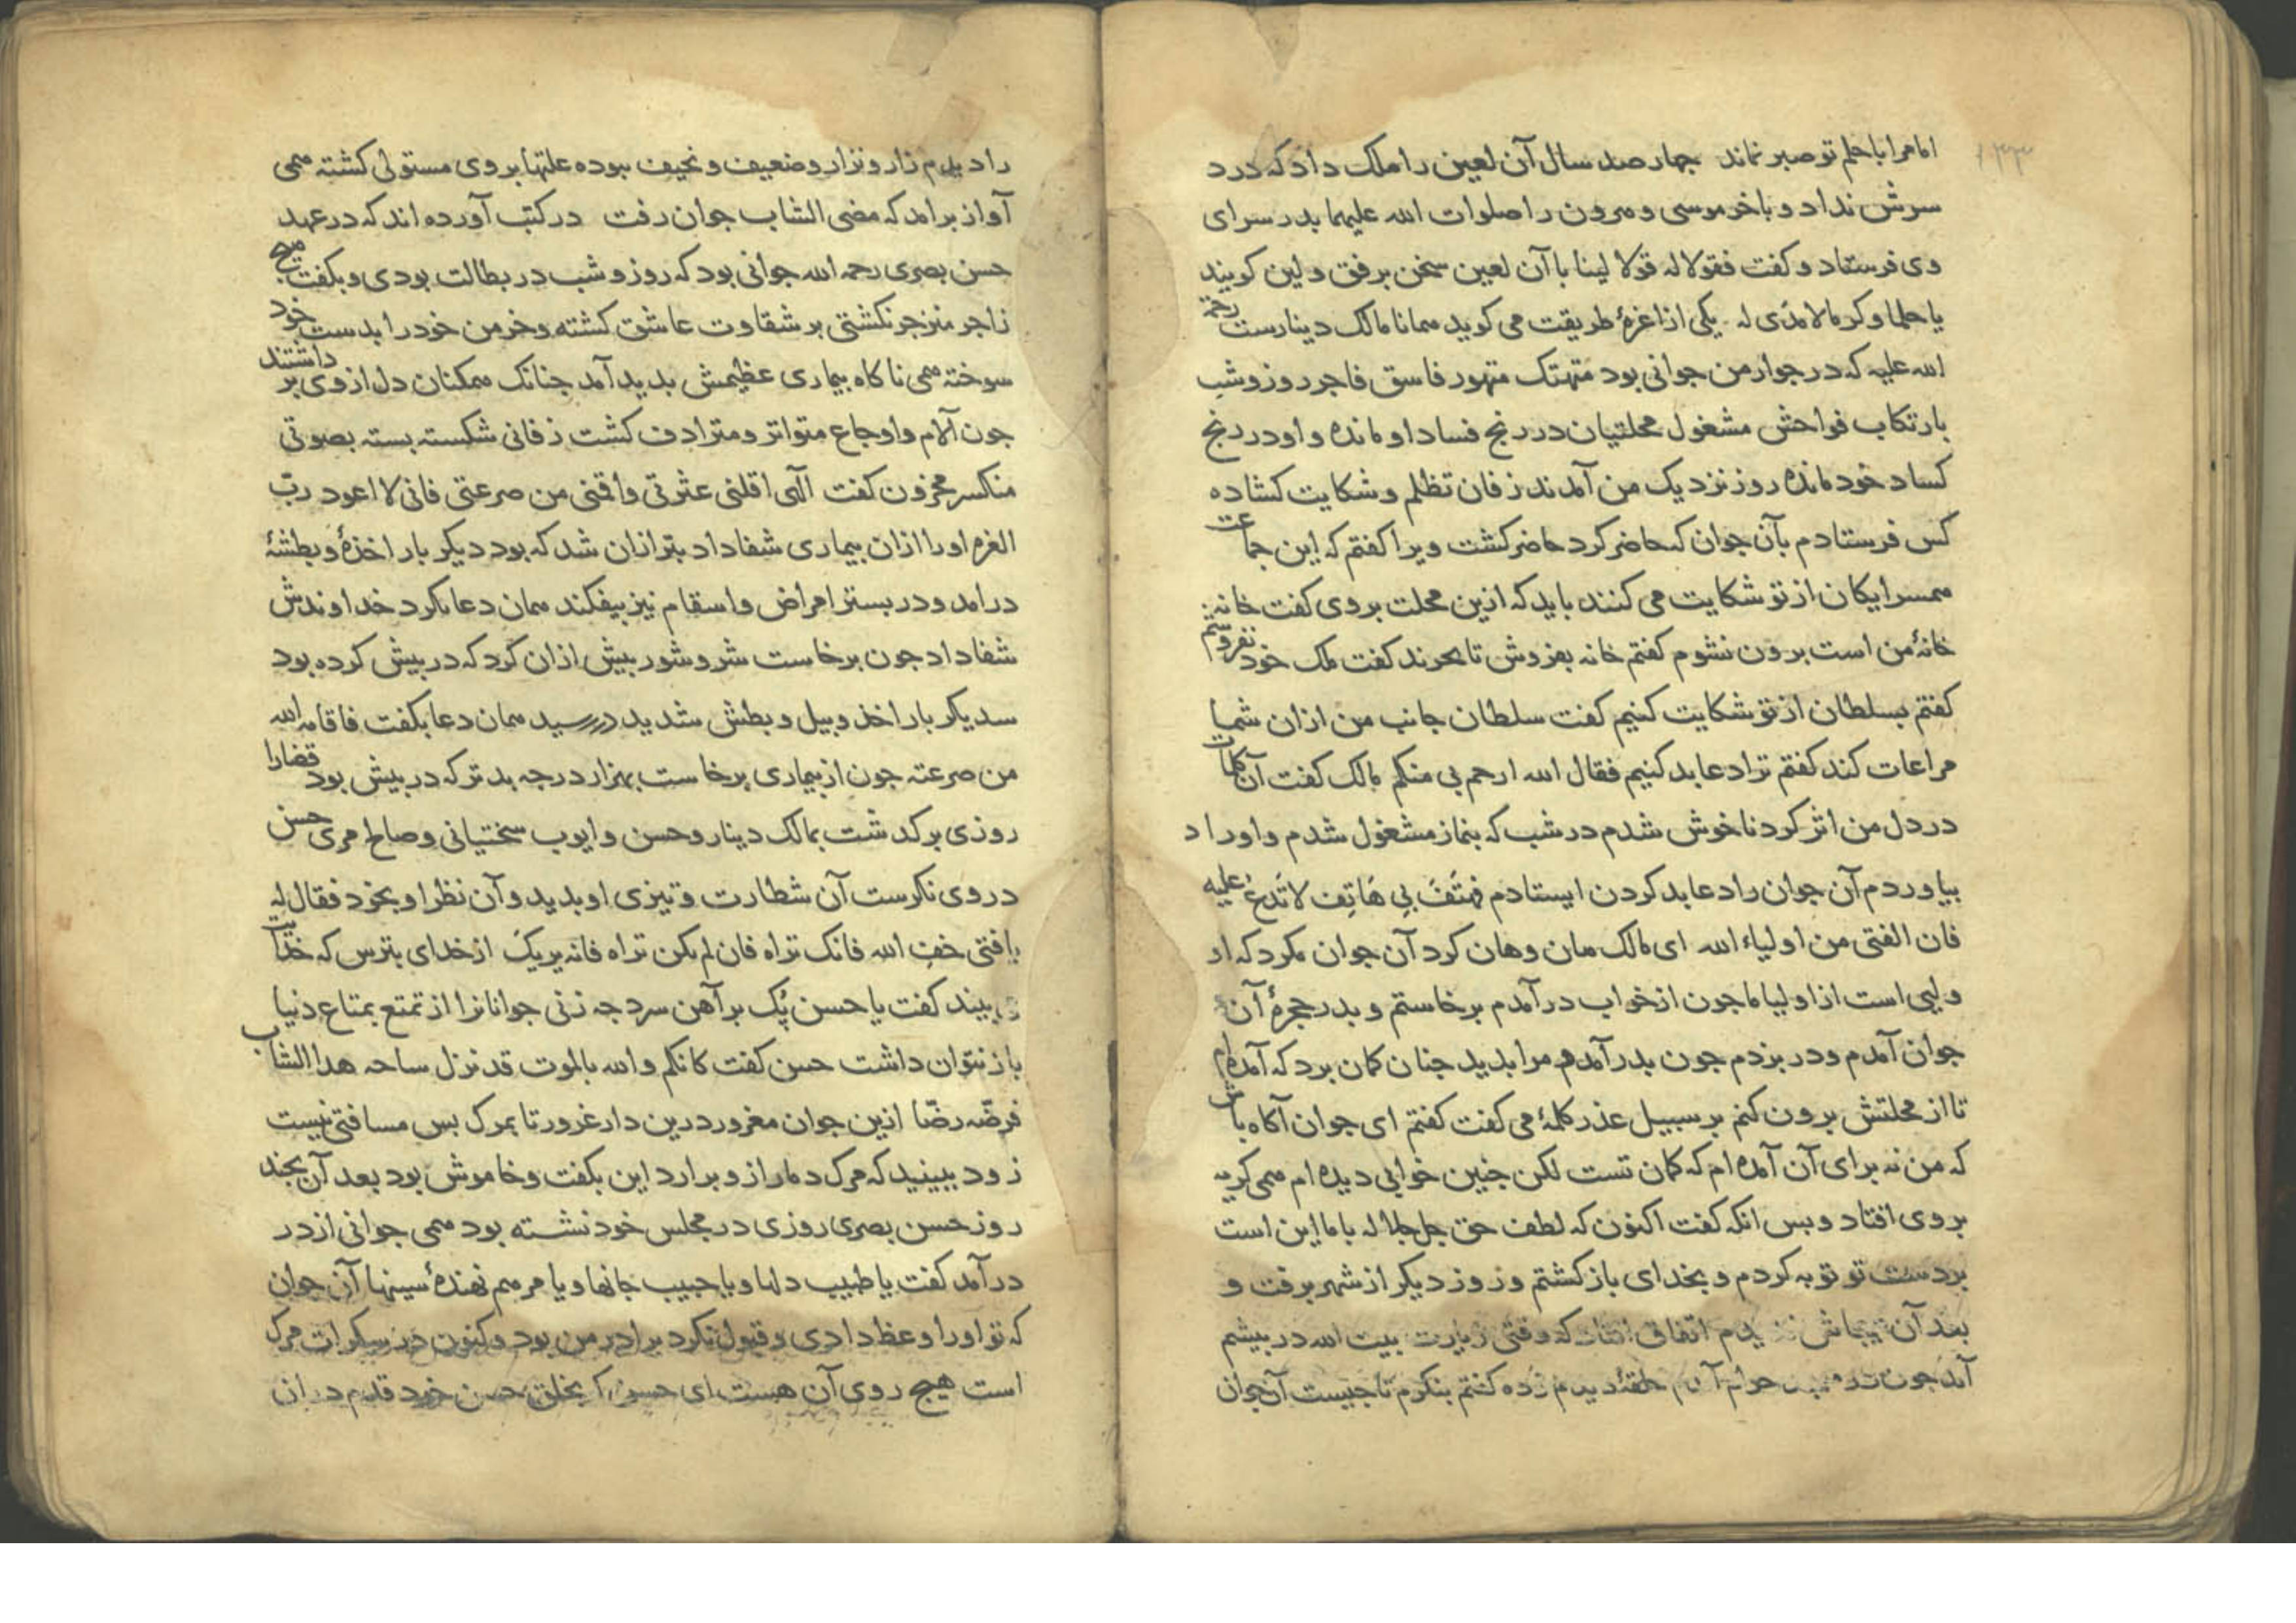 ۱۳۳
اما مرا با حلم تو صبر نماند جهار صد سال آن لعین را ملک داد که درد
سرش نداد و باخر موسی و هرون را صلوات الله علیهما بدر سرای
وی فرستاد و کفت فقولا له قولا لینا با آن لعین سخن برفق و لین کویند
یا حلما و کرما لا مدی له یکی از اعزۀ طریقت می کوید همانا مالک دینارست رحمة
الله علیه که در جوار من جوانی بود متهتک متهور فاسق فاجر روز و شب
بارتکاب فواحش مشغول محلتیان در رنج فساد او مانده و او در رنج
کساد خود مانده روز نزدیک من آمدند زفان تظلم و شکایت کشاده
کس فرستادم بآن جوان که حاضر کرد حاضر کشت ویرا کفتم که این جماعت
همسرایکان از تو شکایت می کنند باید که ازین محلت بروی کفت خانه
خانۀ من است برون نشوم کفتم خانه بفروش تا بخرند کفت ملک خود نفروشم
کفتم بسلطان از تو شکایت کنیم کفت سلطان جانب من از ان شما
مراعات کند کفتم ترا دعا بد کنیم فقال الله ارحم بی منکم مالک کفت آن کلمات
در دل من اثر کرد ناخوش شدم در شب که بنماز مشغول شدم و اوراد
بیاوردم آن جوان را دعا بد کردن ایستادم فهتَفَ بِی هَاتِف لا تَدعُ علیه
فان الفتی من اولیاء الله ای مالک هان و هان کرد آن جوان مکرد که او
ولیی است از اولیا ما جون از خواب درآمدم برخاستم و بدر حجرۀ آن
جوان آمدم و در بزدم جون بدر آمد مرا بدید جنان کمان برد که آمده ام
تا از محلتش برون کنم بر سبیل عذر کلمۀ می کفت کفتم ای جوان آکاه باش
که من نه برای آن آمده ام که کمان تست لکن جنین خوابی دیده ام همی کریه
بروی افتاد و بس انکه کفت اکنون که لطف حق جل جلاله با ما این است
بر دست تو توبه کردم و بخدای باز کشتم و روز دیکر از شهر برفت و
بعد آن بیماش ندیدم اتفاق افتاد که وقتی زیارت بیت الله در بیشم
آمد جون در حرام آمدم حلقۀ دیدم زده کفتم بنکرم تا جیست آن جوان
را دیدم زار و نزار و ضعیف و نحیف بوده علتها بر وی مستولی کشته همی
آواز برامد که مضی الشاب جوان رفت در کتب آورده اند که در عهد
حسن بصری رحمه الله جوانی بود که روز و شب در بطالت بودی و بکفت هیج
زاجر منزجر نکشتی بر شقاوت عاشق کشته و خرمن خود را بدست خود
سوخته همی ناکاه بیماری عظیمش بدید آمد جنانک همکنان دل از وی بر داشتند
جون آلام و اوجاع متواتر و مترادف کشت زفانی شکسته بسته بصوتی
منکسر محزون کفت الهی اقلنی عثرتی واقمنی من صرعتی فانی لا اعود ربّ
العزه اورا ازان بیماری شفا داد بتر ازان شد که بود دیکر بار اخذۀ و بطشۀ
درامد و در بستر امراض و اسقام نیز بیفکند همان دعا بکرد خداوندش
شفا داد جون برخاست شر و شور بیش ازان کرد که در بیش کرده بود
سدیکر بار اخذ وبیل و بطش شدید در رسید همان دعا بکفت فاقامه الله
من صرعته جون از بیماری برخاست بهزار درجه بدتر که در بیش بود قضا را
روزی برکذشت بمالک دینار و حسن و ایوب سختیانی و صالح مری حسن
در وی نکرست آن شطارت و تیزی او بدید و آن نظر او بخود فقال له
یا فتی خفِ الله فانک تراه فان لم یکن تراه فانه یریکَ از خدای بترس که خدات
می بیند کفت یا حسن پُک بر آهن سرد جه زنی جوانانرا از تمتع بمتاع دنیا
باز نتوان داشت حسن کفت کانکم والله بالموت قد نزل ساحه هدا الشاب
فرضّه رضّا ازین جوان مغرور درین دار غرور تا بمرک بس مسافتی نیست
زود ببینید که مرک دمار از و برارد این بکفت و خاموش بود بعد آن بجند
روز حسن بصری روزی در مجلس خود نشسته بود همی جوانی از در
درآمد کفت یا طبیب دلها و یا حبیب جانها و یا مرهم نهندۀ سینها آن جوان
که تو اورا وعظ دادی و قبول نکرد برادر من بود و کنون در سکرات مرک
است هیج روی آن هست ای حسن کر بخلق حسن خود قدم دران